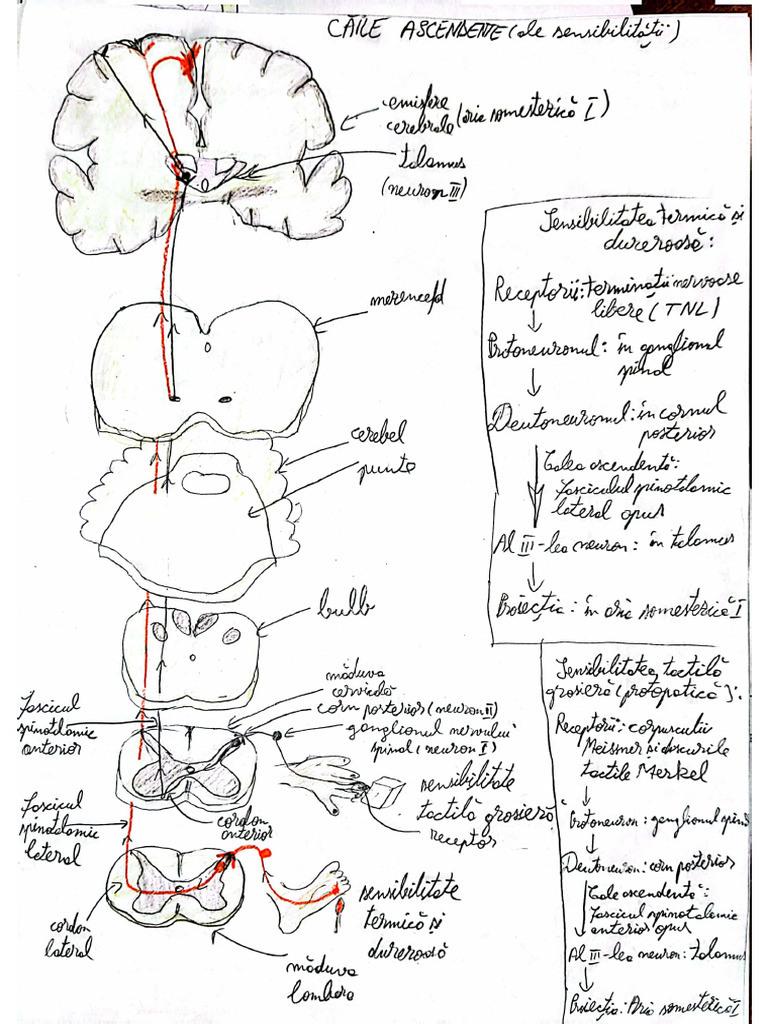 CĂILE ASCENDENTE (ale sensibilității)
emisfere
cerebrale (aria somesterică I)
talamus
(neuron III)
mezencefal
cerebel
punte
bulb
măduva
cervicală
corn posterior (neuron II)
ganglionul nervului
spinal (neuron I)
Fascicul
spinotalamic
anterior
sensibilitate
tactilă grosieră
receptor
cordon
anterior
Fascicul
spinotalamic
lateral
cordon
lateral
sensibilitate
termică și
dureroasă
măduva
lombara
Sensibilitatea termică și
dureroasă:
Receptorii: terminații nervoase
libere (TNL)
Protoneuronul: în ganglionul
spinal
Deutoneuronul: în cornul
posterior
Calea ascendentă:
Fasciculul spinotalamic
lateral opus
Al III-lea neuron: în talamus
Proiecția: în aria somesterică I
Sensibilitatea tactilă
grosieră (protopatică):
Receptorii: corpusculii
Meissner și discurile
tactile Merkel
Protoneuron: ganglionul spinal
Deutoneuron: corn posterior
Cale ascendentă:
Fascicul spinotalamic
anterior opus
Al III-lea neuron: talamus
Proiecția: Aria somesterică I